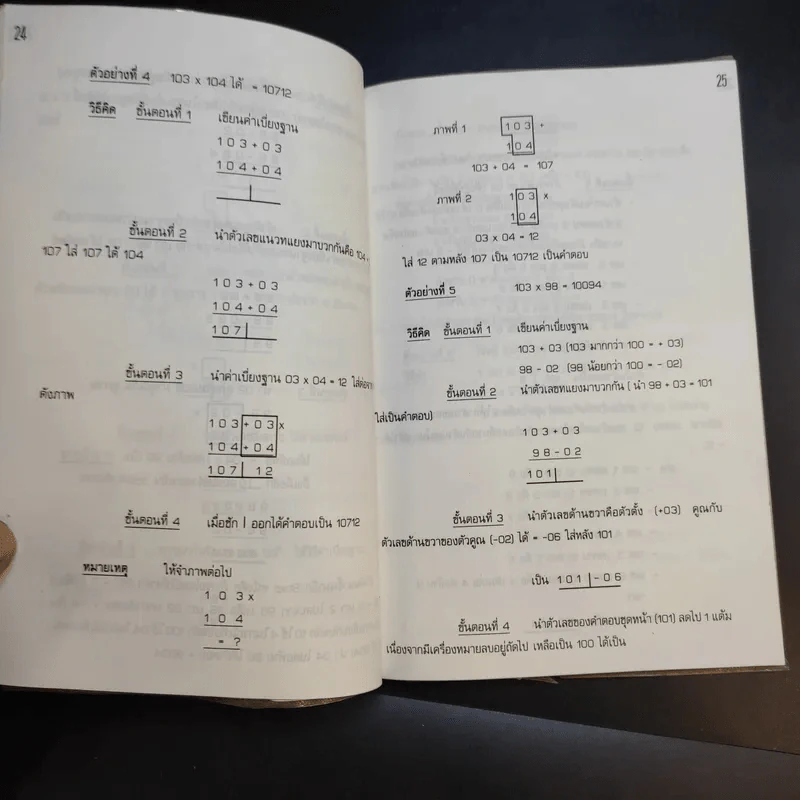 24
ตัวอย่างที่ 4 103 x 104 ได้ = 10712
วิธีคิด ขั้นตอนที่ 1 เขียนค่าเบี่ยงฐาน
103+03
104+04
ขั้นตอนที่ 2 นำตัวเลขแนวทแยงมาบวกกันคือ 104 +
107 ใส่ 107 ได้ 104
103+03
104+04
107|
ขั้นตอนที่ 3 นำค่าเบี่ยงฐาน 03 x 04 = 12 ใส่ต่อจาก
ดังภาพ
103+03 x
104+04
107| 12
ขั้นตอนที่ 4 เมื่อชัก | ออกได้คำตอบเป็น 10712
หมายเหตุ ให้จำภาพต่อไป
103x
104
= ?
25
ภาพที่ 1 103 +
104
103 + 04 = 107
ภาพที่ 2 103 x
104
03 x 04 = 12
ใส่ 12 ตามหลัง 107 เป็น 10712 เป็นคำตอบ
ตัวอย่างที่ 5 103 x 98 = 10094
วิธีคิด ขั้นตอนที่ 1 เขียนค่าเบี่ยงฐาน
103 + 03 (103 มากกว่า 100 = + 03)
98 - 02 (98 น้อยกว่า 100 = - 02)
ขั้นตอนที่ 2 นำตัวเลขทแยงมาบวกกัน ( นำ 98 + 03 = 101
ใส่เป็นคำตอบ)
103+03
98-02
101|
ขั้นตอนที่ 3 นำตัวเลขด้านขวาคือตัวตั้ง (+03) คูณกับ
ตัวเลขด้านขวาของตัวคูณ (-02) ได้ = -06 ใส่หลัง 101
เป็น 101|-06
ขั้นตอนที่ 4 นำตัวเลขของคำตอบชุดหน้า (101) ลดไป 1 แต้ม
เนื่องจากมีเครื่องหมายลบอยู่ถัดไป เหลือเป็น 100 ได้เป็น